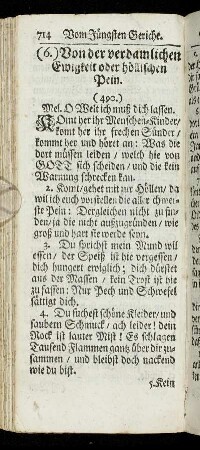 714 Vom Jüngsten Geriche.
(6.) Von der verdamlichen
Ewigkeit oder höllischen
Pein.
(490.)
Mel. O Welt ich muß dich lassen.
Komt her ihr Menschen-Kinder/
komt her ihr frechen Sünder/
kommt her und höret an: Was die
dort müssen leiden / welch hie von
GOTT sich scheiden / und die kein
Warnung schrecken kan.
2. Komt / gehet mit zur Höllen / da
wil ich euch vorstellen die aller schwer-
ste Pein: Dergleichen nicht zu fin-
den / ja die nicht außzugründen / wie
groß und hart sie werde seyn.
3. Du sprichst mein Mund wil
essen / der Speiß ist hie vergessen /
dich hungert ewiglich; dich dürstet
aus der Massen / kein Trost ist hie
zu fassen: Nur Pech und Schwefel
sättigt dich.
4. Du suchest schöne Kleider / und
saubern Schmuck / ach leider! dein
Rock ist lauter Mist! Es schlagen
Tausend Flammen gantz über dir zu-
sammen / und bleibst doch nackend
wie du bist.
5. Kein